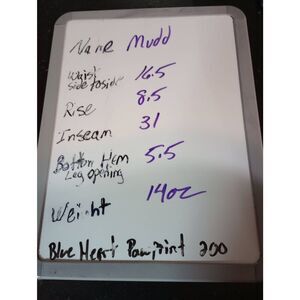 Name Mudd
Waist side to side 16.5
Rise 8.5
Inseam 31
Bottom Hem 5.5
Leg opening
Weight 14oz
Blue Heart Pawprint 200